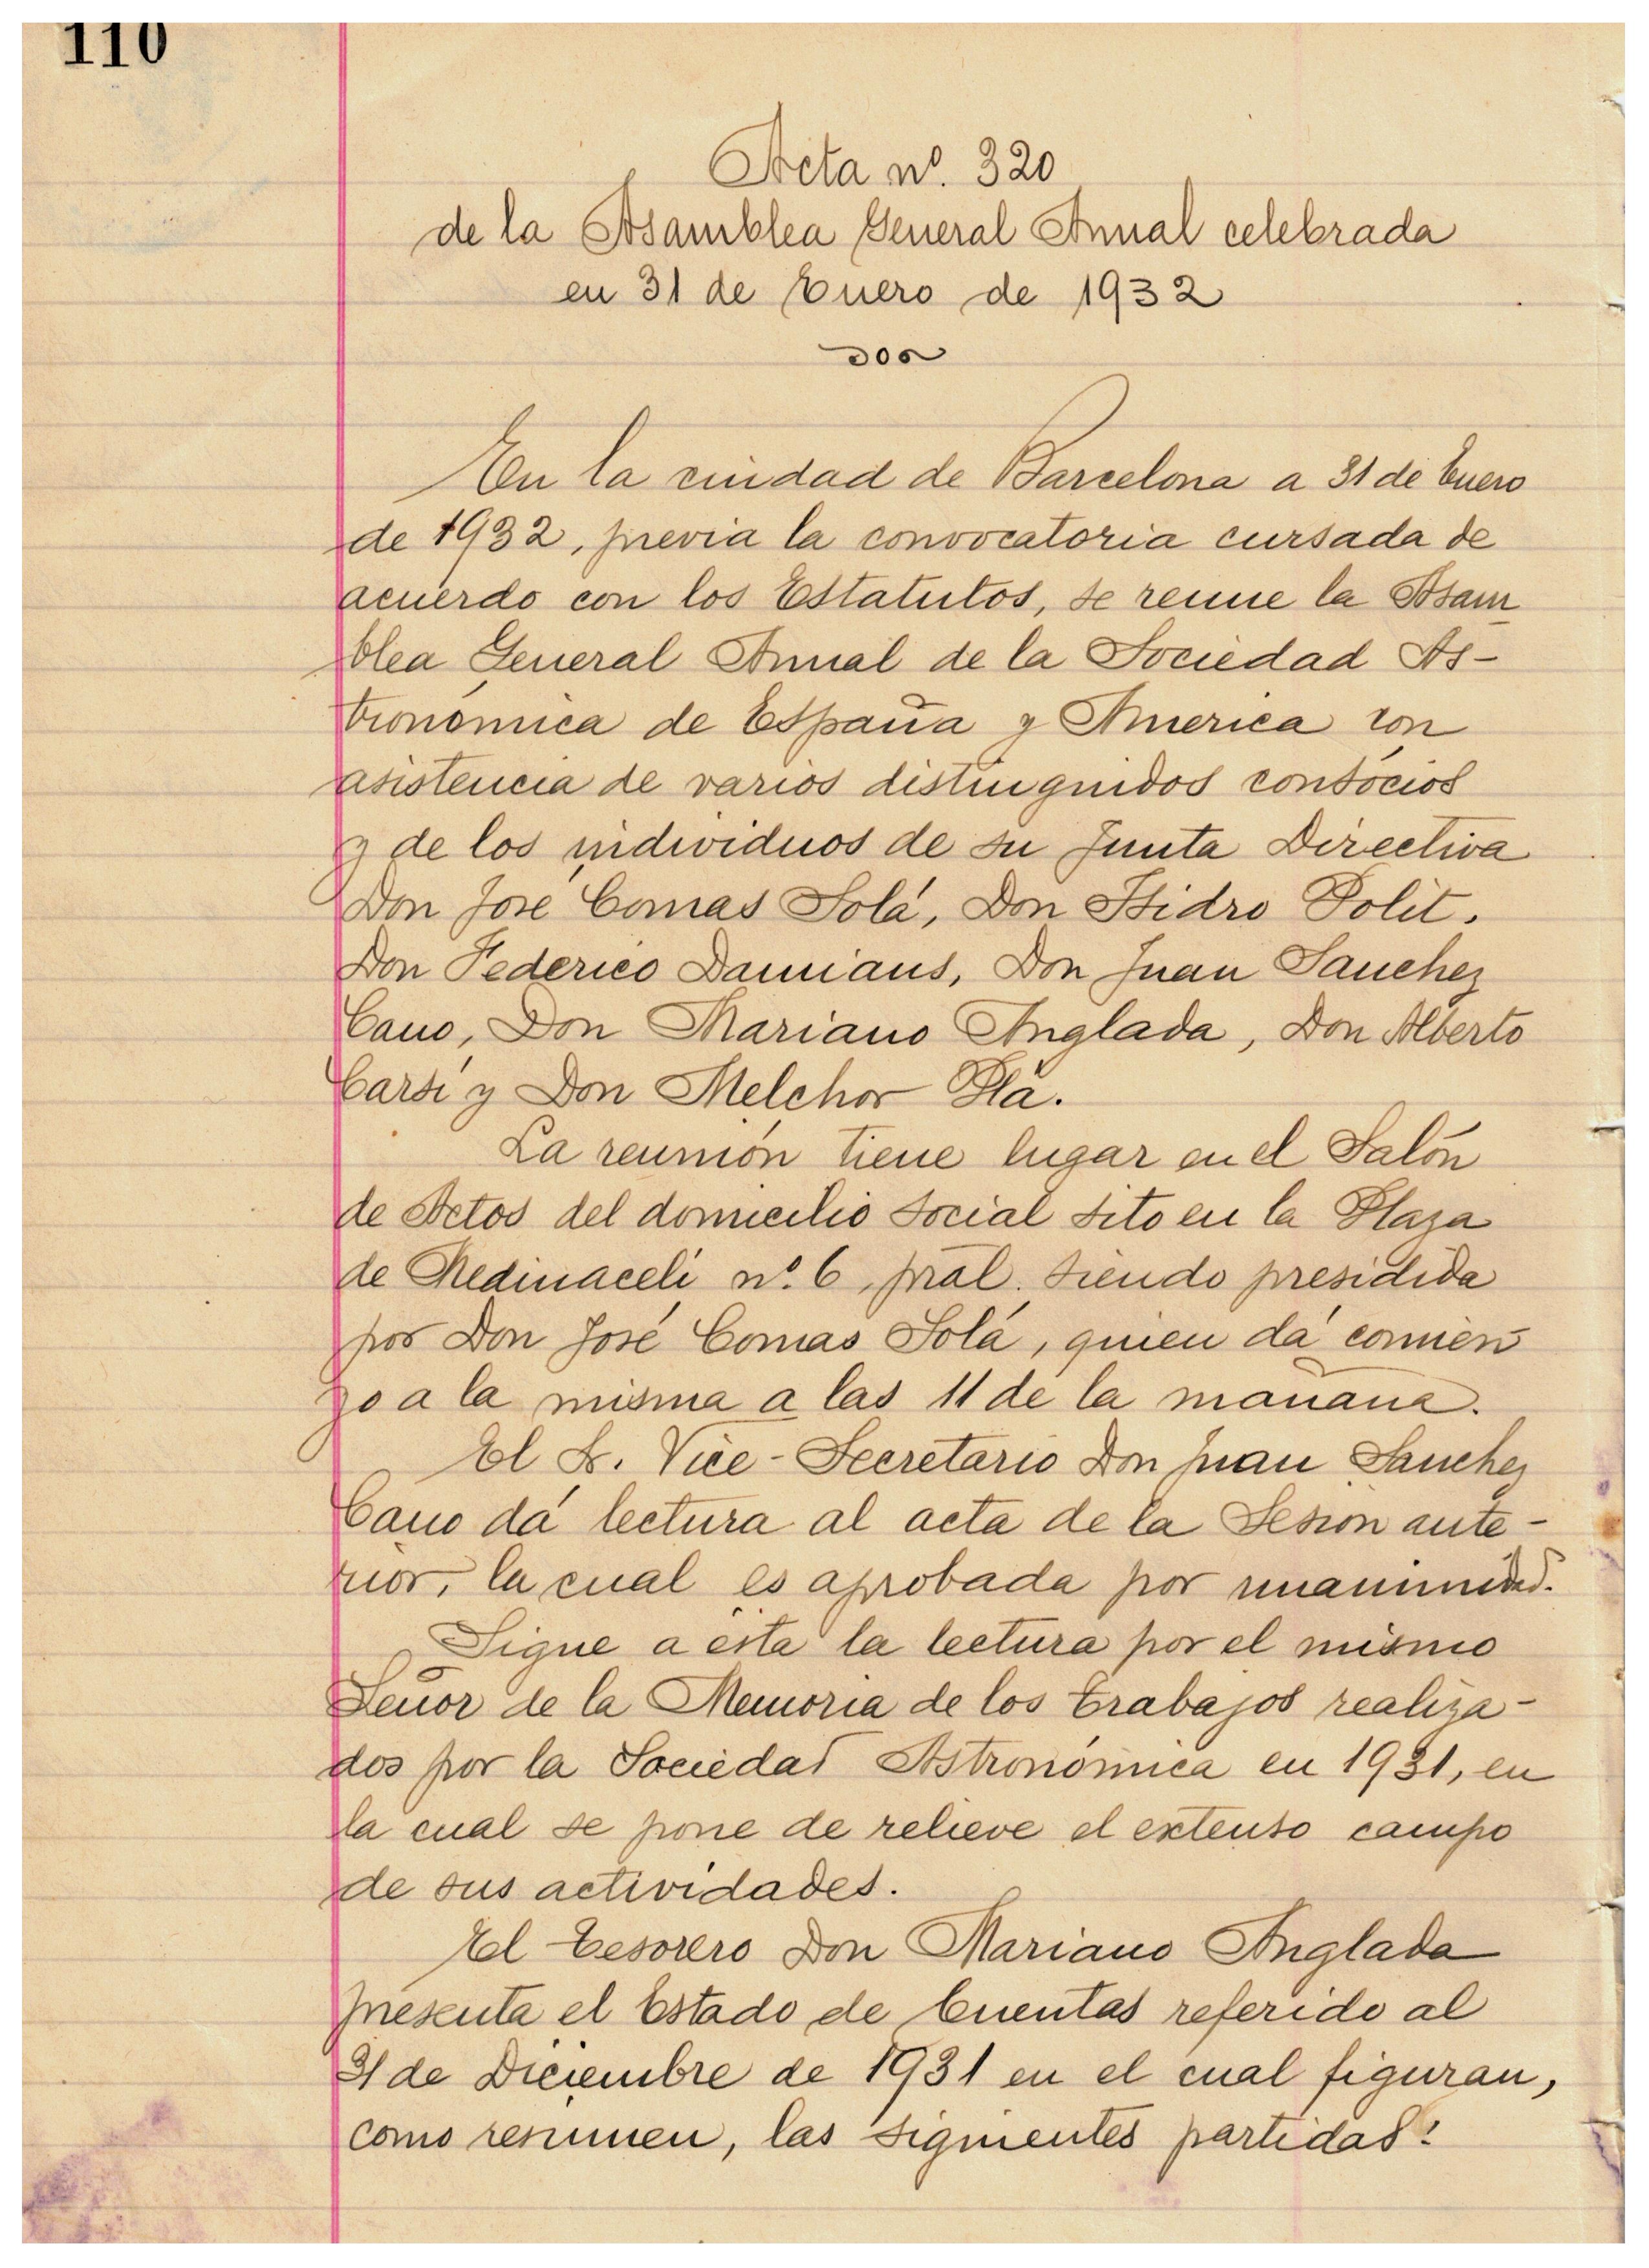 110
Acta nº. 320
de la Asamblea General Anual celebrada
en 31 de Enero de 1932
En la ciudad de Barcelona a 31 de Enero
de 1932, previa la convocatoria cursada de
acuerdo con los Estatutos, se reune la Asam
blea General Anual de la Sociedad As-
tronómica de España y America con
asistencia de varios distinguidos consócios
y de los individuos de su Junta Directiva
Don José Comas Solá, Don Isidro Polit.
Don Federico Damians, Don Juan Sanchez
Cano, Don Mariano Anglada, Don Alberto
Carsí y Don Melchor Plá.
La reunión tiene lugar en el Salón
de Actos del domicilio social sito en la Plaza
de Medinaceli nº. 6, pral. siendo presidida
por Don José Comas Solá, quien dá comien
zo a la misma a las 11 de la mañana.
El Sr. Vice-Secretario Don Juan Sanchez
Cano dá lectura al acta de la Sesion ante-
rior, la cual es aprobada por unanimidad.
Sigue a ésta la lectura por el mismo
Señor de la Memoria de los trabajos realiza-
dos por la Sociedad Astronómica en 1931, en
la cual se pone de relieve el extenso campo
de sus actividades.
El Tesorero Don Mariano Anglada
presenta el Estado de Cuentas referido al
31 de Diciembre de 1931 en el cual figuran,
como resumen, las siguientes partidas: